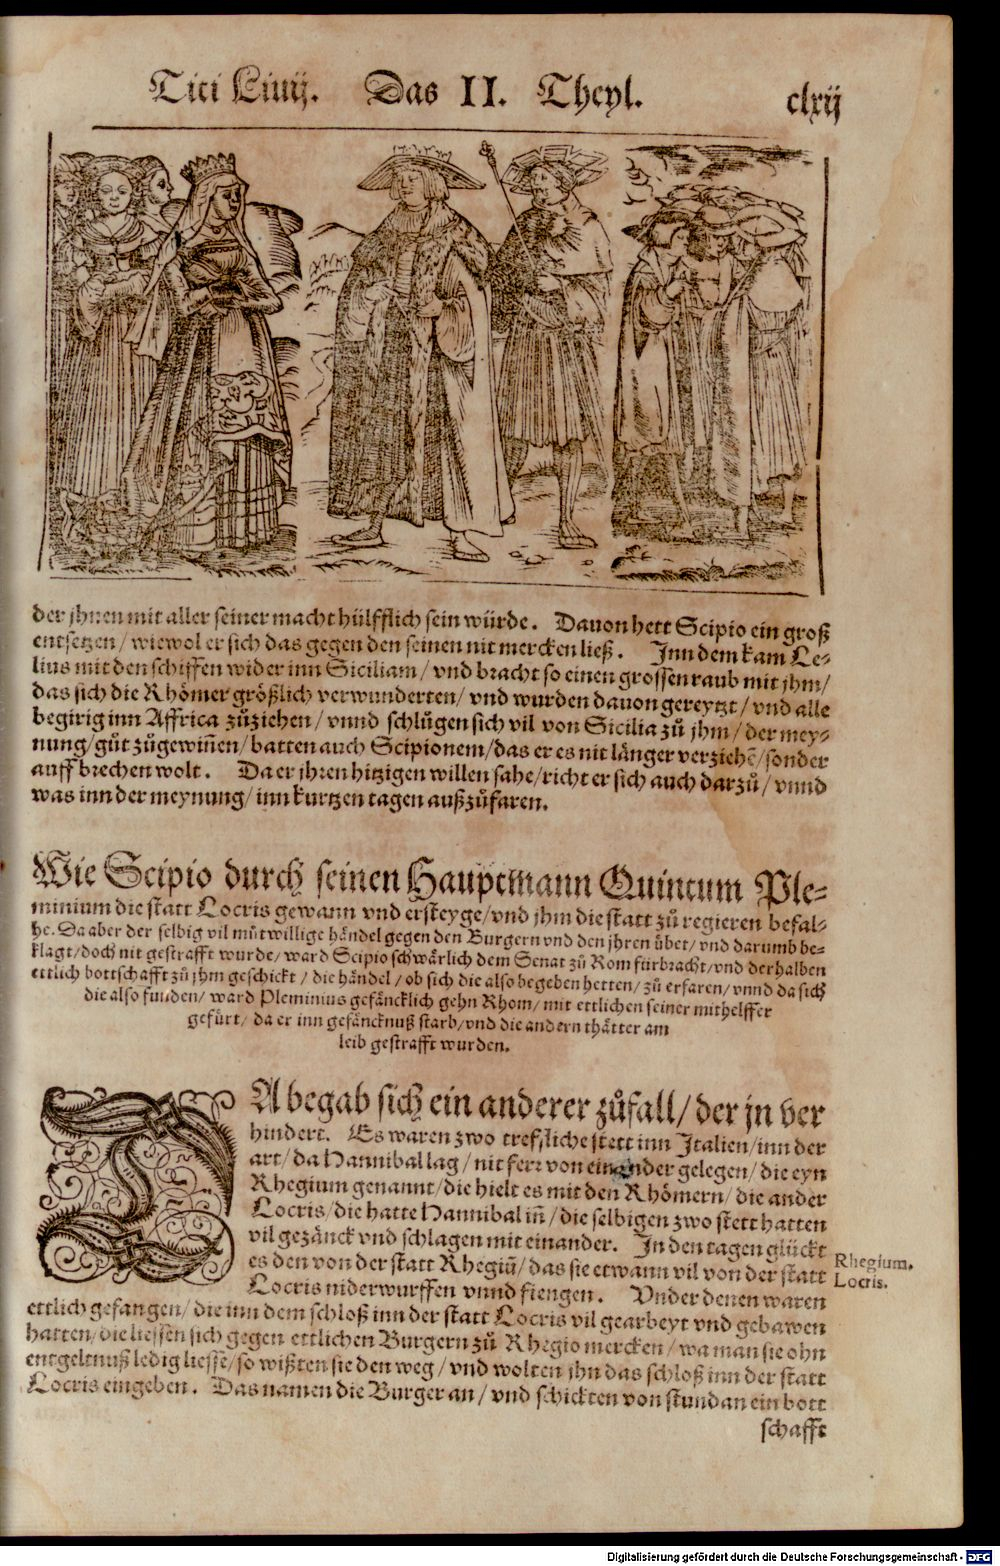 Titi Liuij. Das II. Theyl. clxij
der jhnen mit aller seiner macht hülfflich sein würde. Dauon hett Scipio ein groß
entsetzen / wiewol er sich das gegen den seinen nit mercken ließ. Inn dem kam Le⸗
lius mit den schiffen wider inn Siciliam / vnd bracht so einen grossen raub mit jhm /
das sich die Rhömer größlich verwunderten / vnd wurden dauon gereytzt / vnd alle
begirig inn Affrica zůziehen / vnnd schlůgen sich vil von Sicilia zů jhm / der mey⸗
nung / gůt zůgewiñen / batten auch Scipionem / das er es nit länger verziehẽ / sonder
auff brechen wolt. Da er jhren hitzigen willen sahe / richt er sich auch darzů / vnnd
was inn der meynung / inn kurtzen tagen außzůfaren.
Wie Scipio durch seinen Hauptmann Quintum Ple⸗
minium die statt Locris gewann vnd ersteyge / vnd jhm die statt zů regieren befal⸗
he. Da aber der selbig vil můtwillige händel gegen den Burgern vnd den jhren übet / vnd darumb be⸗
klagt / doch nit gestrafft wurde / ward Scipio schwärlich dem Senat zů Rom fürbracht / vnd derhalben
ettlich bottschafft zů jhm geschickt / die händel / ob sich die also begeben hetten / zů erfaren / vnnd da sich
die also funden / ward Pleminius gefäncklich gehn Rhom / mit ettlichen seiner mithelffer
gefürt / da er inn gefäncknuß starb / vnd die andern thätter am
leib gestrafft wurden.
DA begab sich ein anderer zůfall / der jn ver
hindert. Es waren zwo treffliche stett inn Italien / inn der
art / da Hannibal lag / nit ferr von einander gelegen / die eyn
Rhegium genannt / die hielt es mit den Rhömern / die ander
Locris / die hatte Hannibal iñ / die selbigen zwo stett hatten
vil gezänck vnd schlagen mit einander. In den tagen glückt
es den von der statt Rhegiũ / das sie etwann vil von der statt
Locris niderwurffen vnnd fiengen. Vnder denen waren
Rhegium.
Locris.
ettlich gefangen / die inn dem schloß inn der statt Locris vil gearbeyt vnd gebawen
hatten / die liessen sich gegen ettlichen Burgern zů Rhegio mercken / wa man sie ohn
entgeltnuß ledig liesse / so wißten sie den weg / vnd wolten jhn das schloß inn der statt
Locris eingeben. Das namen die Burger an / vnd schickten von stundan ein bott
schafft
Digitalisierung gefördert durch die Deutsche Forschungsgemeinschaft - DFG